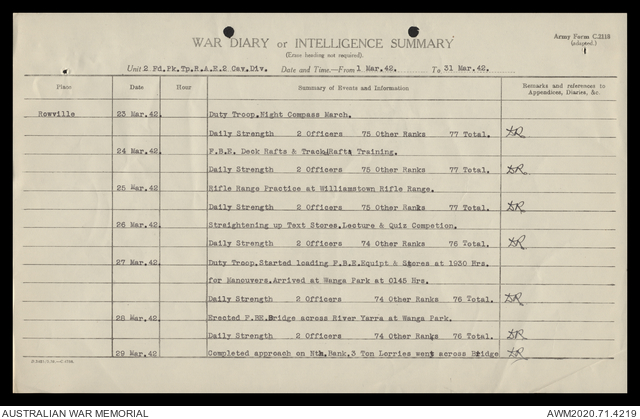 WAR DIARY or INTELLIGENCE SUMMARY
(Erase heading not required).
Army Form C.2118
(adapted.)
Unit 2 Fd.Pk.Tp.R.A.E.2 Cav.Div. Date and Time.—From 1 Mar.42. To 31 Mar.42.
Place Date Hour Summary of Events and Information Remarks and references to Appendices, Diaries, &c.
Rowville 23 Mar.42. Duty Troop.Night Compass March.
Daily Strength 2 Officers 75 Other Ranks 77 Total.
24 Mar.42. F.B.E. Deck Rafts & Track Rafts Training.
Daily Strength 2 Officers 75 Other Ranks 77 Total.
25 Mar.42 Rifle Range Practice at Williamstown Rifle Range.
Daily Strength 2 Officers 75 Other Ranks 77 Total.
26 Mar.42 Straightening up Text Stores.Lecture & Quiz Competion.
Daily Strength 2 Officers 74 Other Ranks 76 Total.
27 Mar.42 Duty Troop.Started loading F.B.E.Equipt & Stores at 1930 Hrs.
for Manouvers.Arrived at Wanga Park at 0145 Hrs.
Daily Strength 2 Officers 74 Other Ranks 76 Total.
28 Mar.42 Erected F.BE.Bridge across River Yarra at Wanga Park.
Daily Strength 2 Officers 74 Other Ranks 76 Total.
29 Mar.42 Completed approach on Nth.Bank.3 Ton Lorries went across Bridge
AUSTRALIAN WAR MEMORIAL AWM2020.71.4219